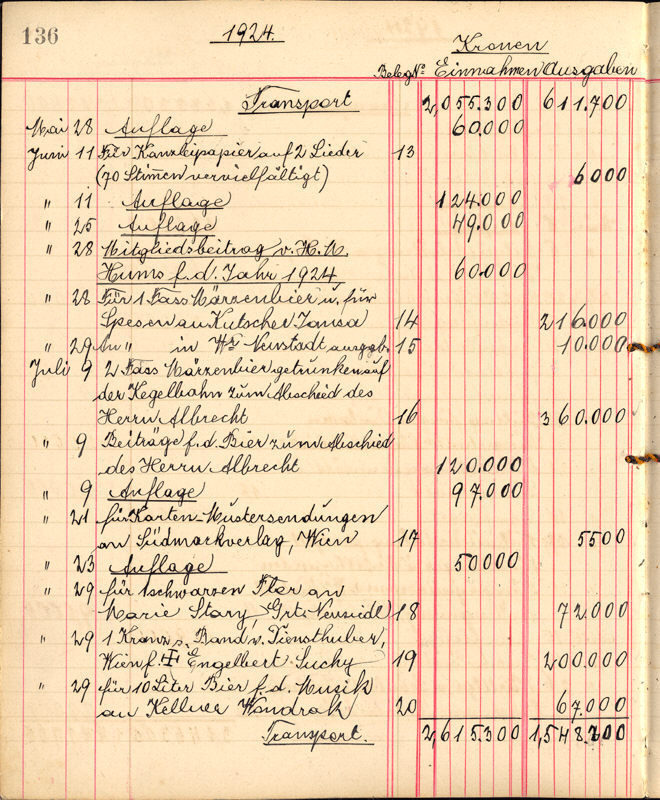 136
1924.
Kronen
Beleg Nº Einnahmen Ausgaben
Transport 2,055.300 611.700
Mai 28 Auflage 60.000
Juni 11 Für Kanzleipapier auf 2 Lieder 13
(70 Stimen vervielfältigt) 6000
" 11 Auflage 124.000
" 25 Auflage 49.000
" 28 Mitgliedsbeitrag v. H. N.
Hums f. d. Jahr 1924 60.000
" 28 Für 1 Fass Märzenbier u. für
Spesen an Kutscher Jansa 14 216.000
" 29 An " in Wr Neustadt ausggb. 15 10.000
Juli 9 2 Fass Märzenbier getrunken auf
der Kegelbahn zum Abschied des
Herrn Albrecht 16 360.000
" 9 Beiträge f. d. Bier zum Abschied
des Herrn Albrecht 120.000
" 9 Auflage 97.000
" 21 für Karten-Mustersendungen
an Südmarkverlag, Wien 17 5500
" 23 Auflage 50000
" 29 für 1 schwarzen Flor an
Marie Stary, Grt. Neusiedl 18 72.000
" 29 1 Kranz s. Band v. Diensthuber,
Wien f. Engelbert Suchy 19 200.000
" 29 für 10 Liter Bier f. d. Musik
an Kellner Wondrak 20 67.000
Transport. 2,615.300 1,548.200